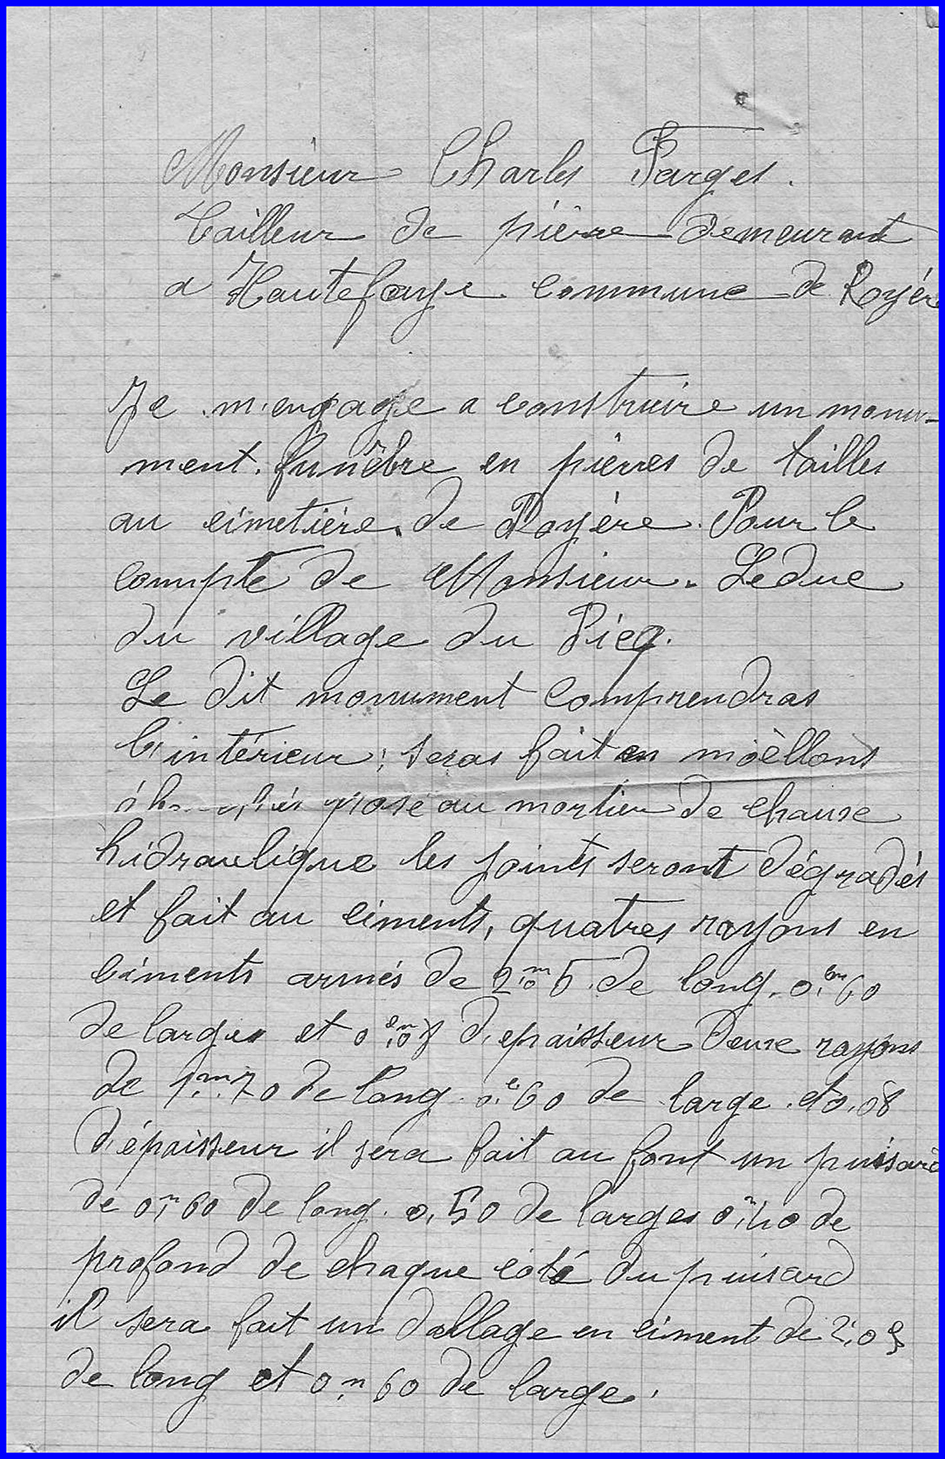 Monsieur Charles Farges.
Tailleur de pierre demeurant
a Hautefaye commune de Royère
Je m'engage a construire un monu-
ment funèbre en pierres de tailles
au cimetière de Royère. Pour le
compte de Monsieur Leduc
du village du Picq.
Le dit monument comprendras
l'intérieur; seras fait en moëllons
posé au mortier de chaux
hidraulique les joints seront dégradés
et fait au ciments, quatres rayons en
ciments armés de 2m,05 de long, 0,m60
de larges et 0,m08 d'epaisseur Deux rayons
de 1,m70 de long 0,60 de large et 0,08
d'épaisseur il sera fait au font un puisard
de 0,m60 de long. 0,50 de larges 0,m40 de
profond de chaque coté du puisard
il sera fait un dallage en ciment de 2,05
de long et 0m60 de large.